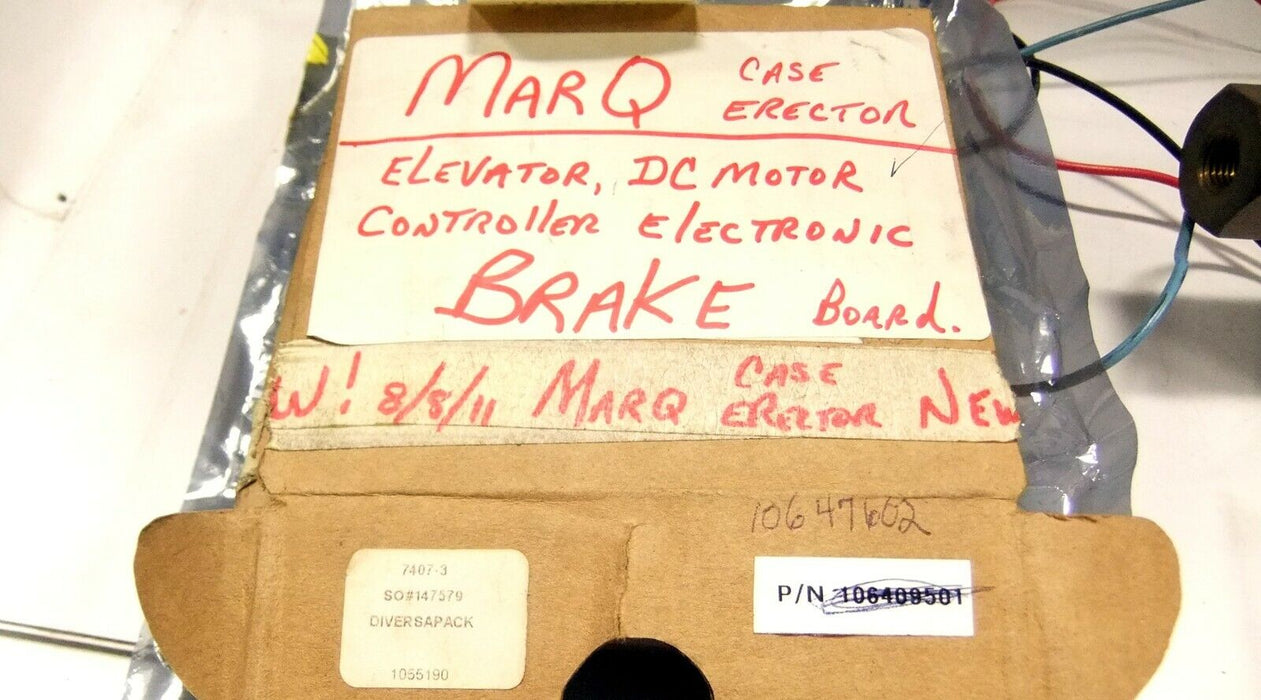 MARQ CASE ERECTOR
ELEVATOR, DC MOTOR
CONTROllER ElECTRONIC
BRAKE BOARD.
W! 8/8/11 MARQ CASE ERECTOR NEW
10647602
7407-3
SO#147579
DIVERSAPACK
1055190
P/N 106409501